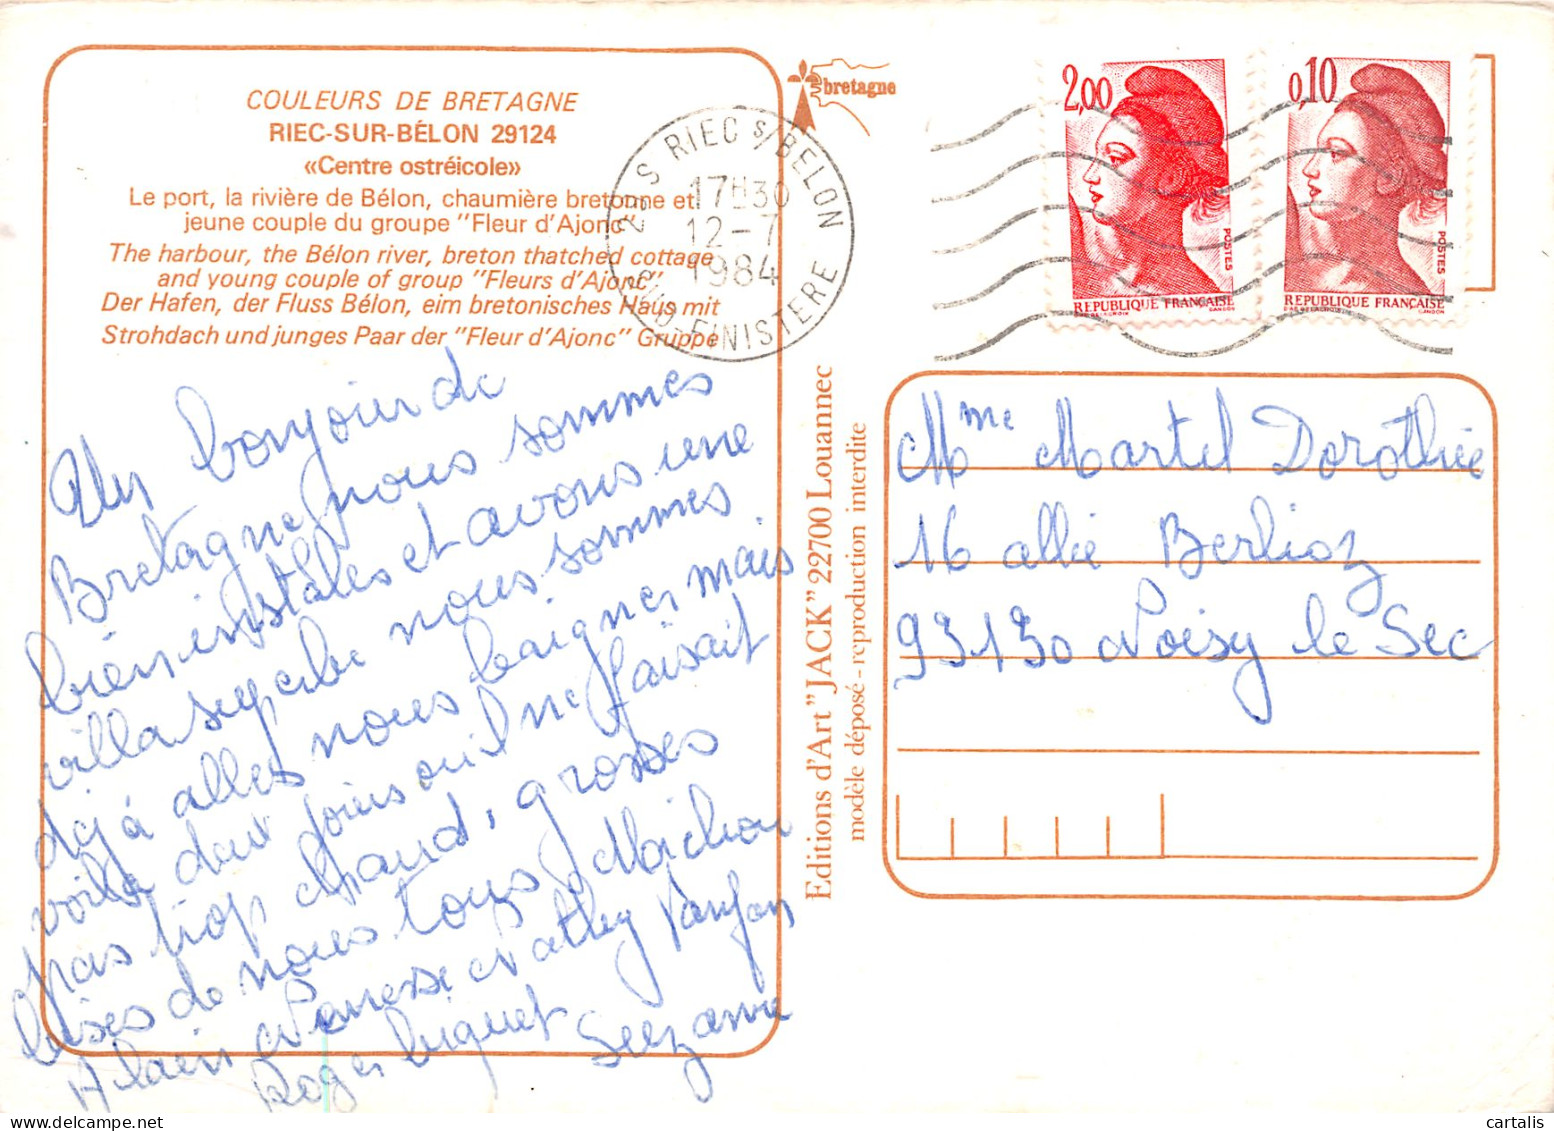 COULEURS DE BRETAGNE
RIEC-SUR-BÉLON 29124
«Centre ostréicole»
Le port, la rivière de Bélon, chaumière bretonne et
jeune couple du groupe "Fleur d'Ajonc"
The harbour, the Bélon river, breton thatched cottage
and young couple of group "Fleurs d'Ajonc"
Der Hafen, der Fluss Bélon, eim bretonisches Haus mit
Strohdach und junges Paar der "Fleur d'Ajonc" Gruppe
Un bonjour de
Bretagne nous sommes
bien installés et avons une
villa superbe nous sommes
déjà allés nous baigner mais
voilà deux jours ou il ne faisait
pas trop chaud, grosses
bises de nous tous
Alain Nathy
Roger Suzanne
bretagne
29 S RIEC S/ BELON
17H30
12-7
1984
SUD-FINISTERE
2,00
POSTES
REPUBLIQUE FRANÇAISE
GANDON
0,10
POSTES
REPUBLIQUE FRANÇAISE
GANDON
Editions d'Art "JACK" 22700 Louannec
modèle déposé - reproduction interdite
Mme Martel Dorothée
16 allée Berlioz
93130 Noisy le Sec
cartalis